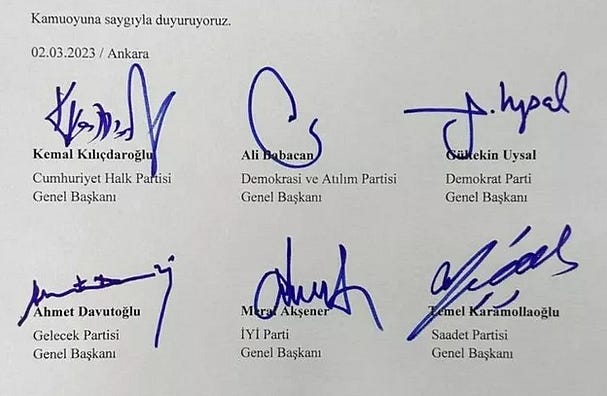 Kamuoyuna saygıyla duyuruyoruz.
02.03.2023 / Ankara
Kemal Kılıçdaroğlu
Ali Babacan
Gültekin Uysal
Cumhuriyet Halk Partisi
Demokrasi ve Atılım Partisi
Demokrat Parti
Genel Başkanı
Genel Başkanı
Genel Başkanı
Ahmet Davutoğlu
Meral Akşener
Temel Karamollaoğlu
Gelecek Partisi
İYİ Parti
Saadet Partisi
Genel Başkanı
Genel Başkanı
Genel Başkanı